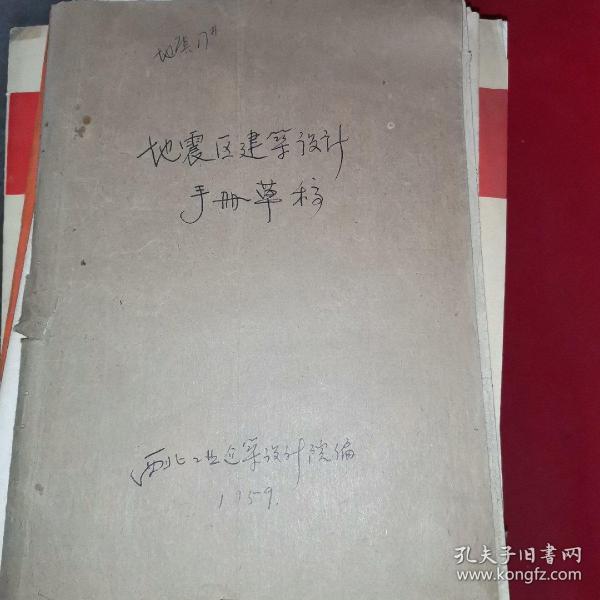 地震区建筑设计
手册草稿
西北工业建筑设计院编
1959.
孔夫子旧書网
www.kongfz.com